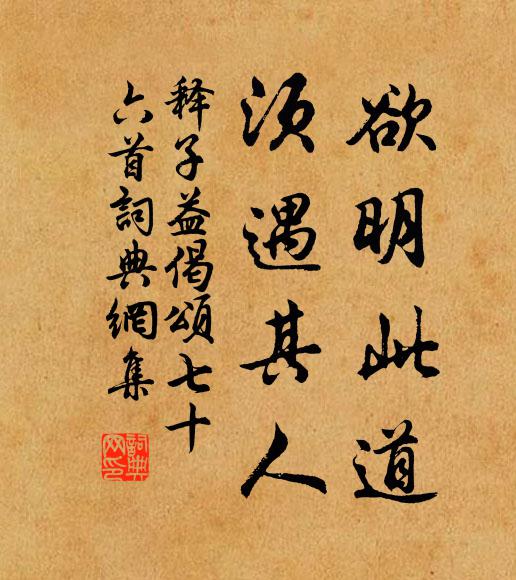 欲明此道
须遇其人
释子益偈頌七十
六首詞典網集
詞典网印